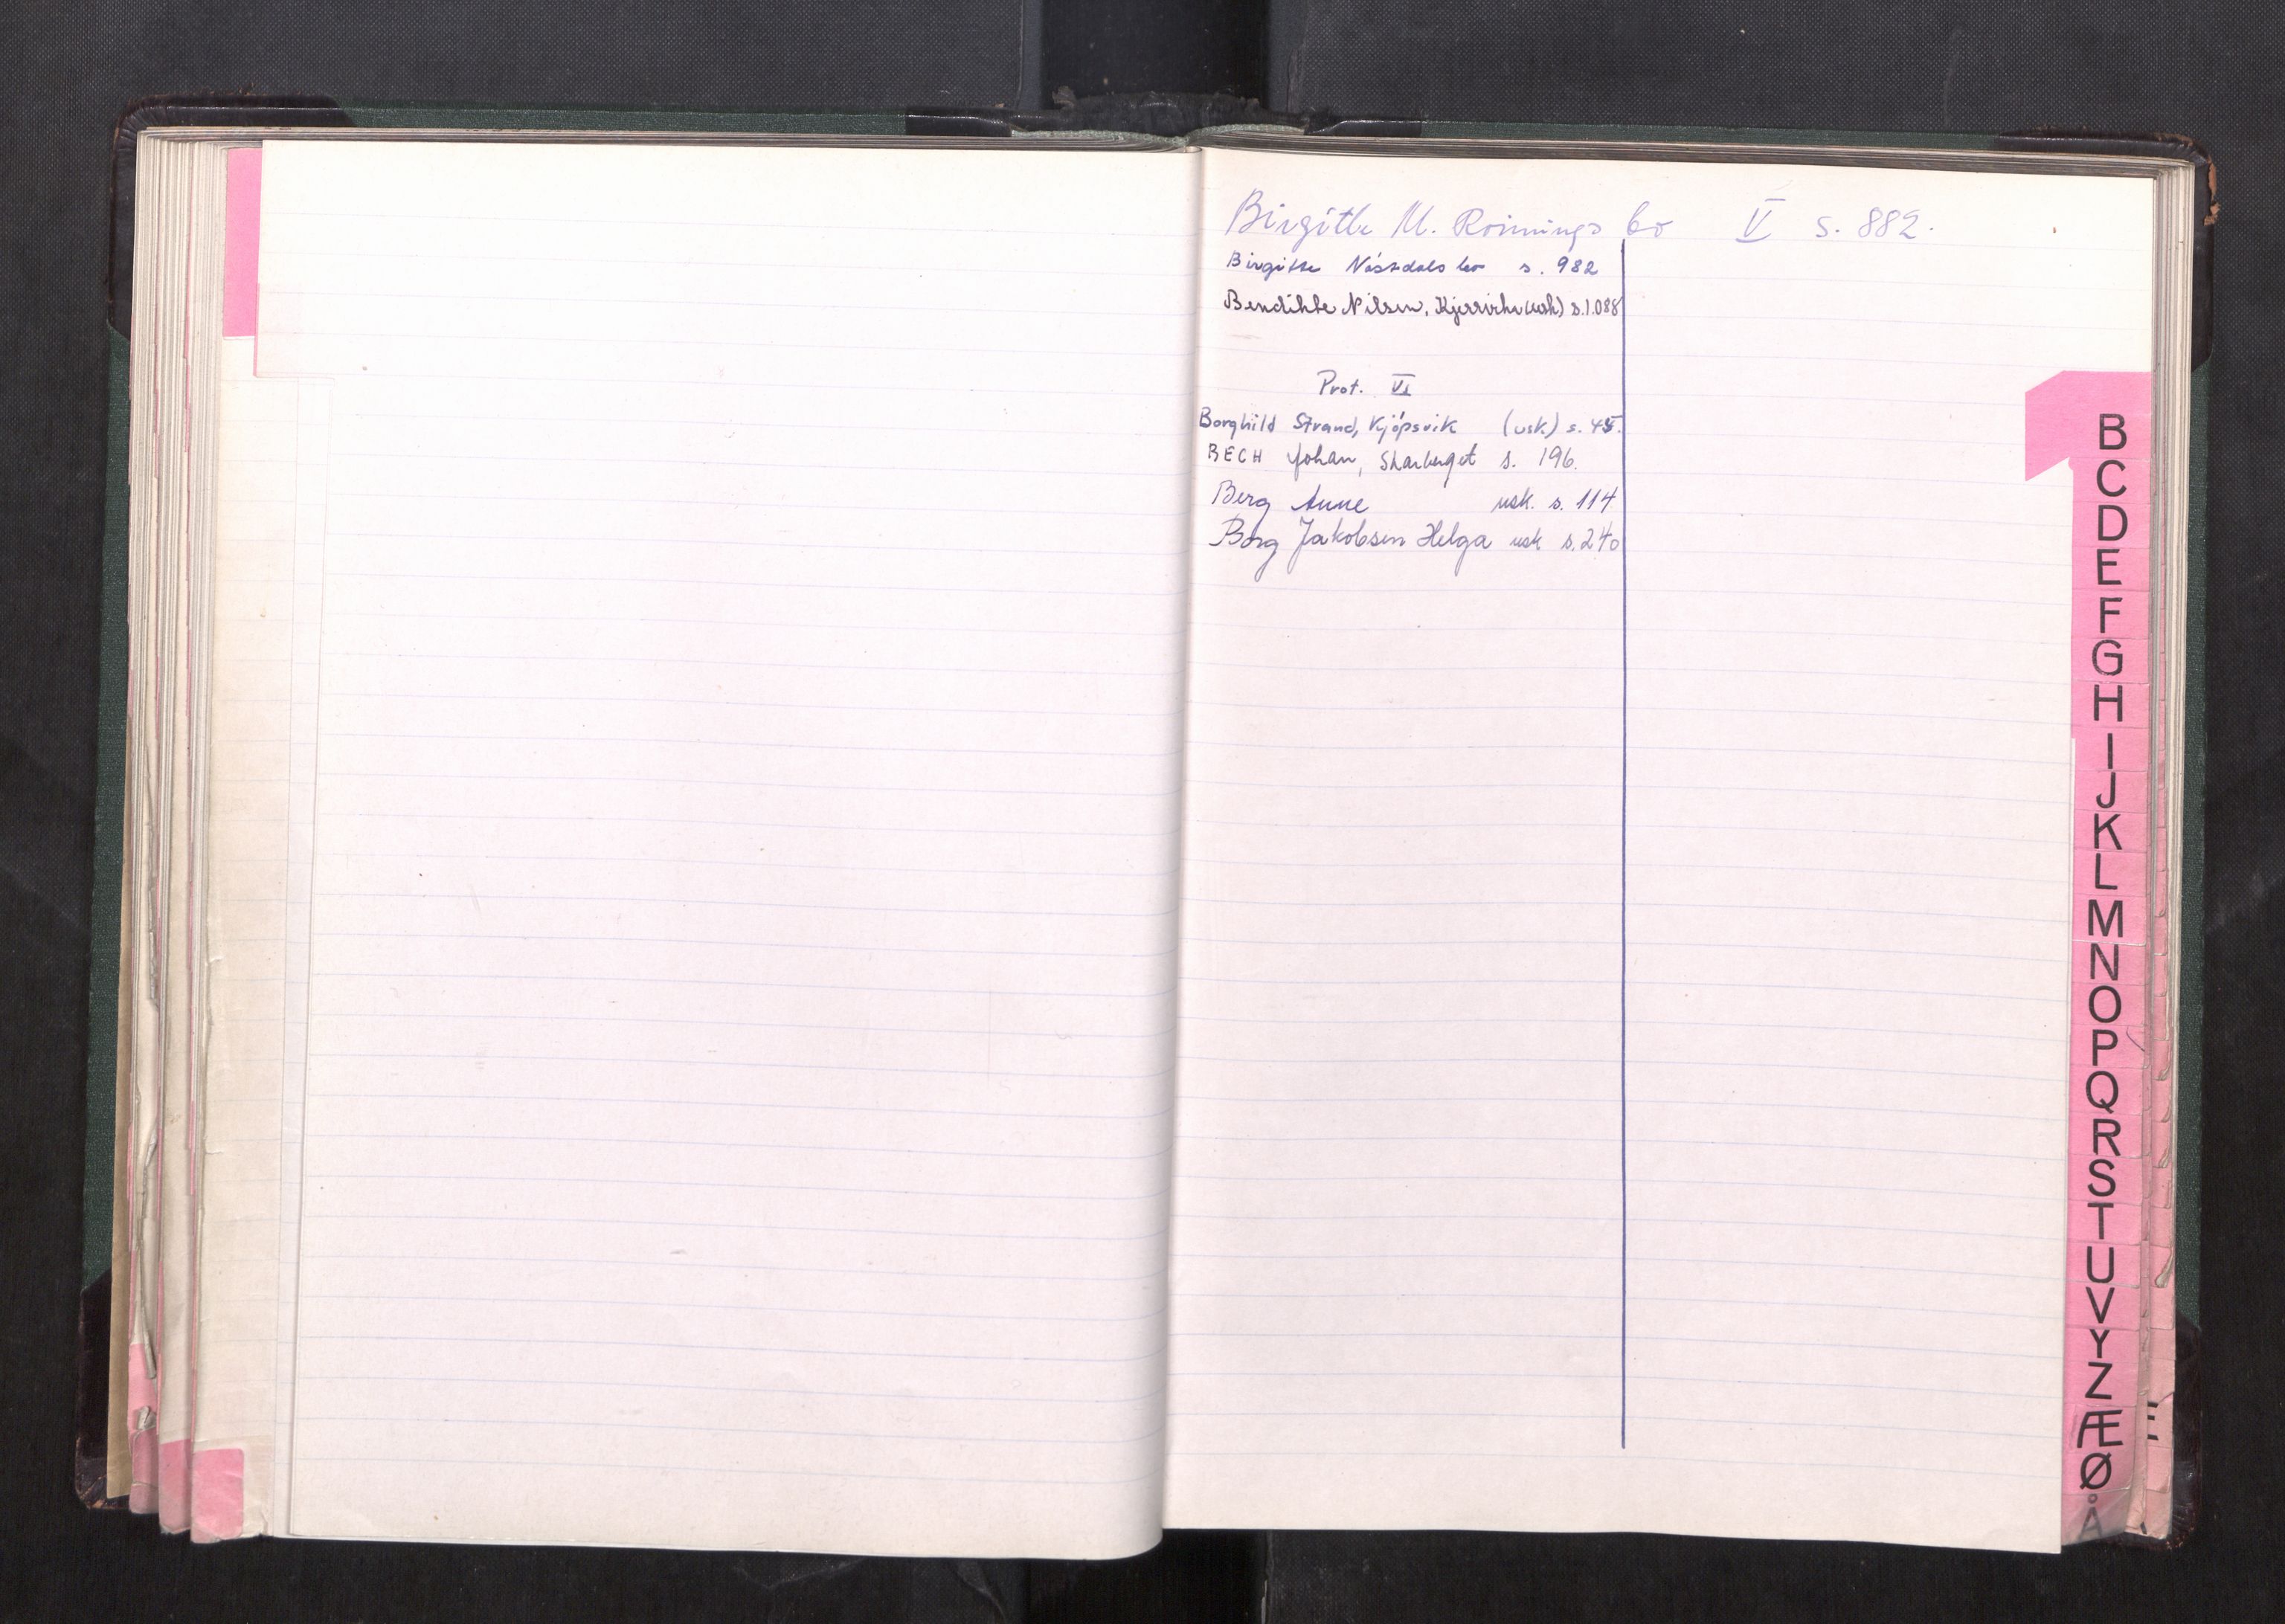 Birgitte M. Rönnings bo V s. 882.
Birgitte Näsdals bo s. 982
Bendikte Nilsen, (usk) s. 1.088
Prot. VI
Borghild Strand, Kjöpsvik (usk.) s. 45.
BECH Johan, Skarberget s. 196.
Berg Anne usk. s. 114
Borg Jakobsen Helga usk s. 240
B
C
D
E
F
G
H
I
J
K
L
M
N
O
P
Q
R
S
T
U
V
Y
Z
Æ
Ø
Å